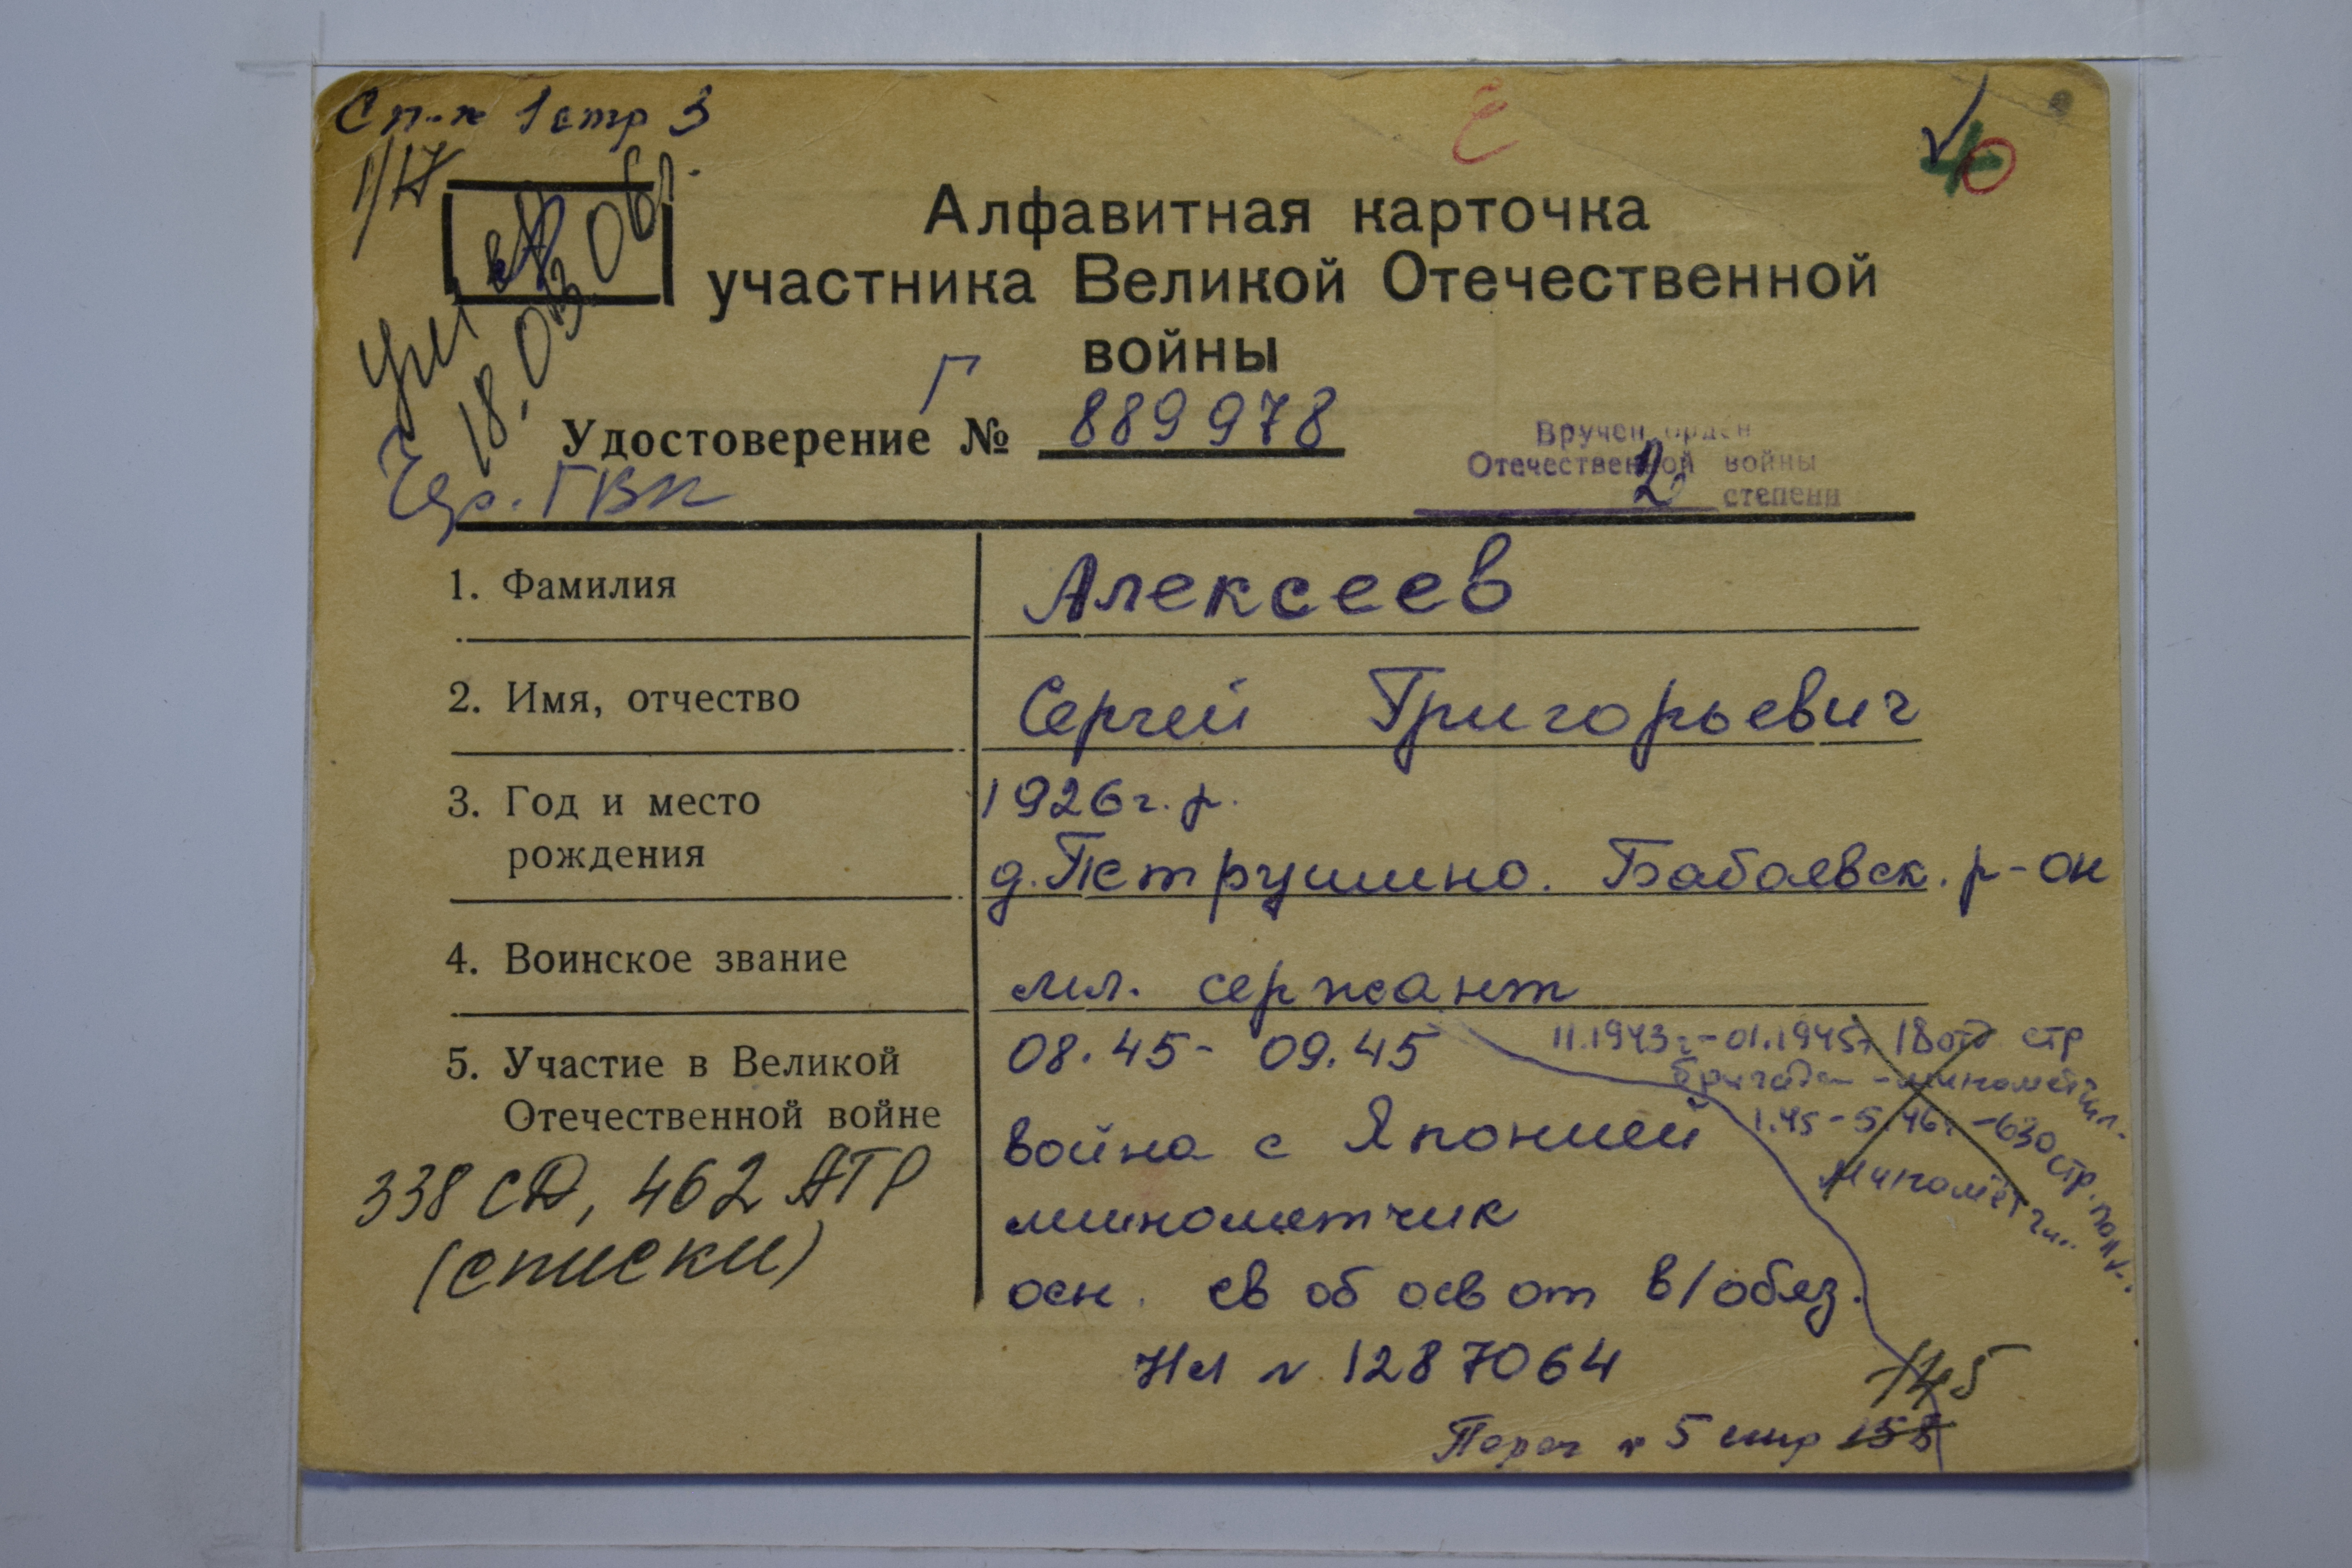 Сп-к 1 стр 3
40
Алфавитная карточка
участника Великой Отечественной
войны
18.03.06г.
Г
Удостоверение № 889978
Чер. ГВК
Вручен орден
Отечественной войны
2 степени
1. Фамилия
Алексеев
2. Имя, отчество
Сергей Григорьевич
3. Год и место
рождения
1926 г.р.
д. Петрушино. Бабаевск. р-он
4. Воинское звание
мл. сержант
5. Участие в Великой
Отечественной войне
338 СД, 462 АТР
(списки)
08.45- 09.45
война с Японией
минометчик
осн. св об осв от в/обяз.
НЛ № 1287064
11.1943г-01.1945г 18 отд стр
бригада - миномётчик
1.45-5.46г -630 стр. полк
Миномётчик
145
№ 5 стр 158